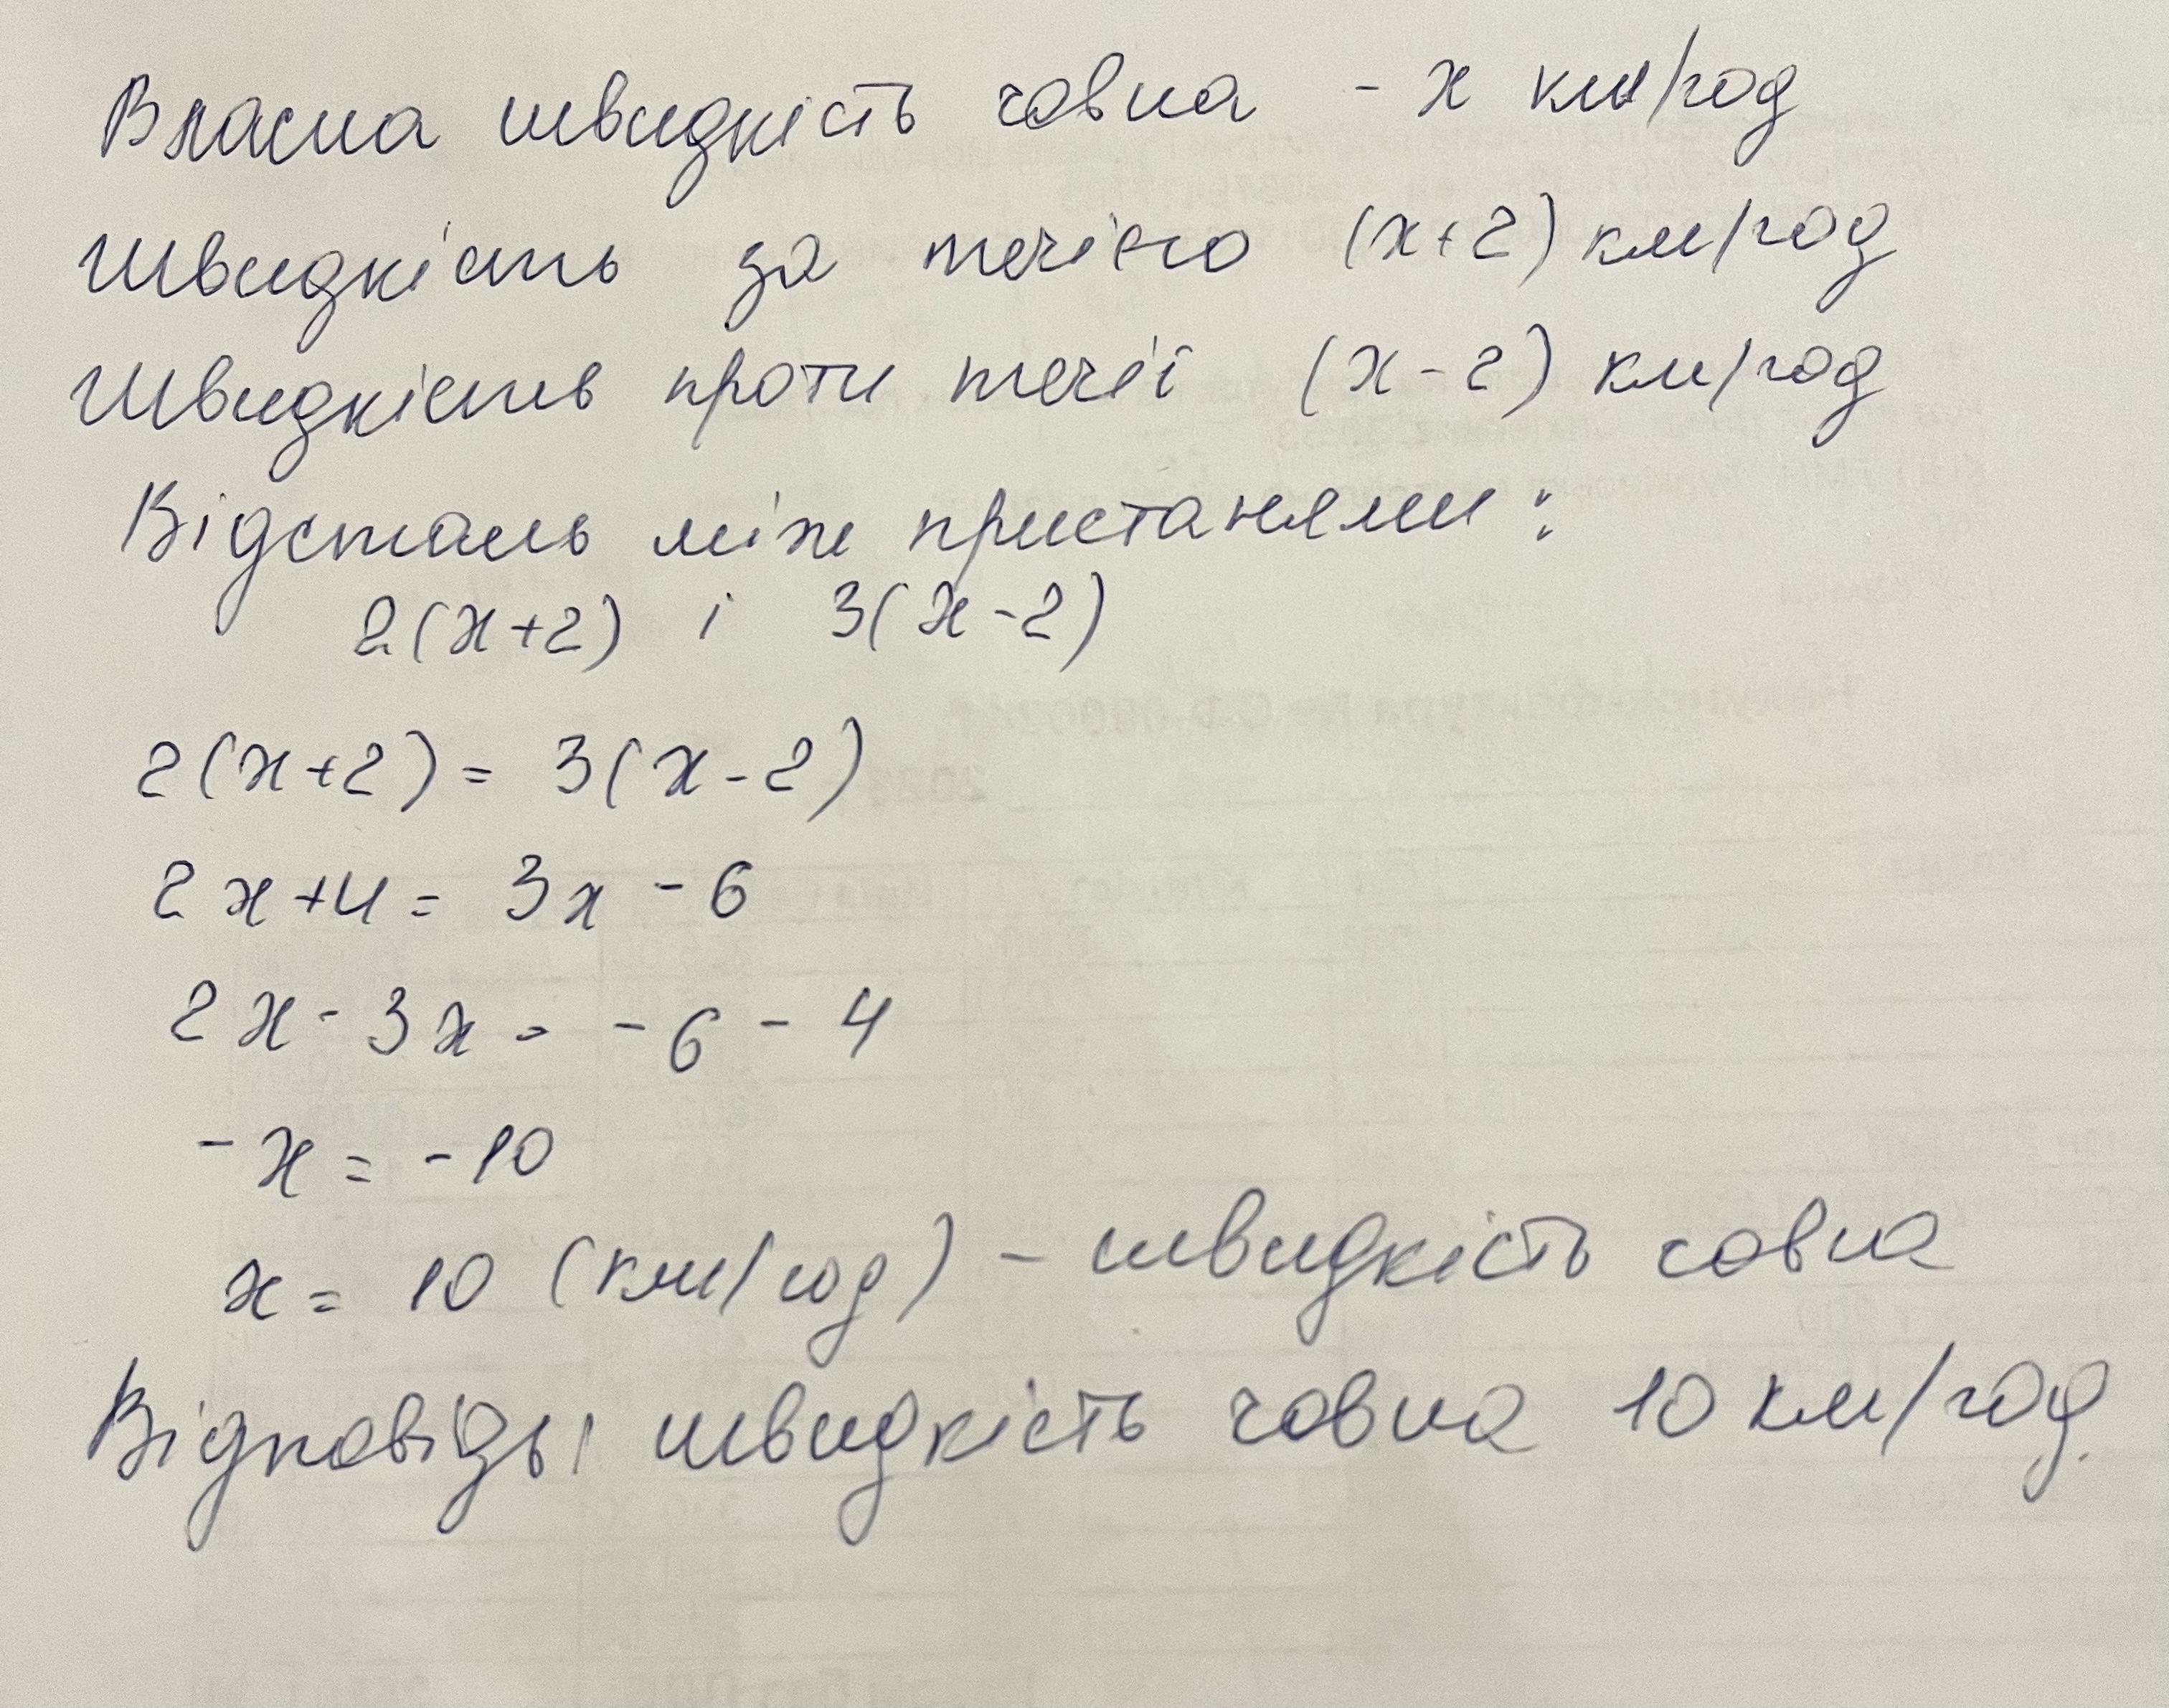 Власна швидкість човна - x км/год
Швидкість за течією (x+2) км/год
Швидкість проти течії (x-2) км/год
Відстань між пристанями:
2(x+2) і 3(x-2)
2(x+2) = 3(x-2)
2x+4 = 3x - 6
2x - 3x = -6 - 4
-x = -10
x = 10 (км/год) - швидкість човна
Відповідь: швидкість човна 10 км/год.